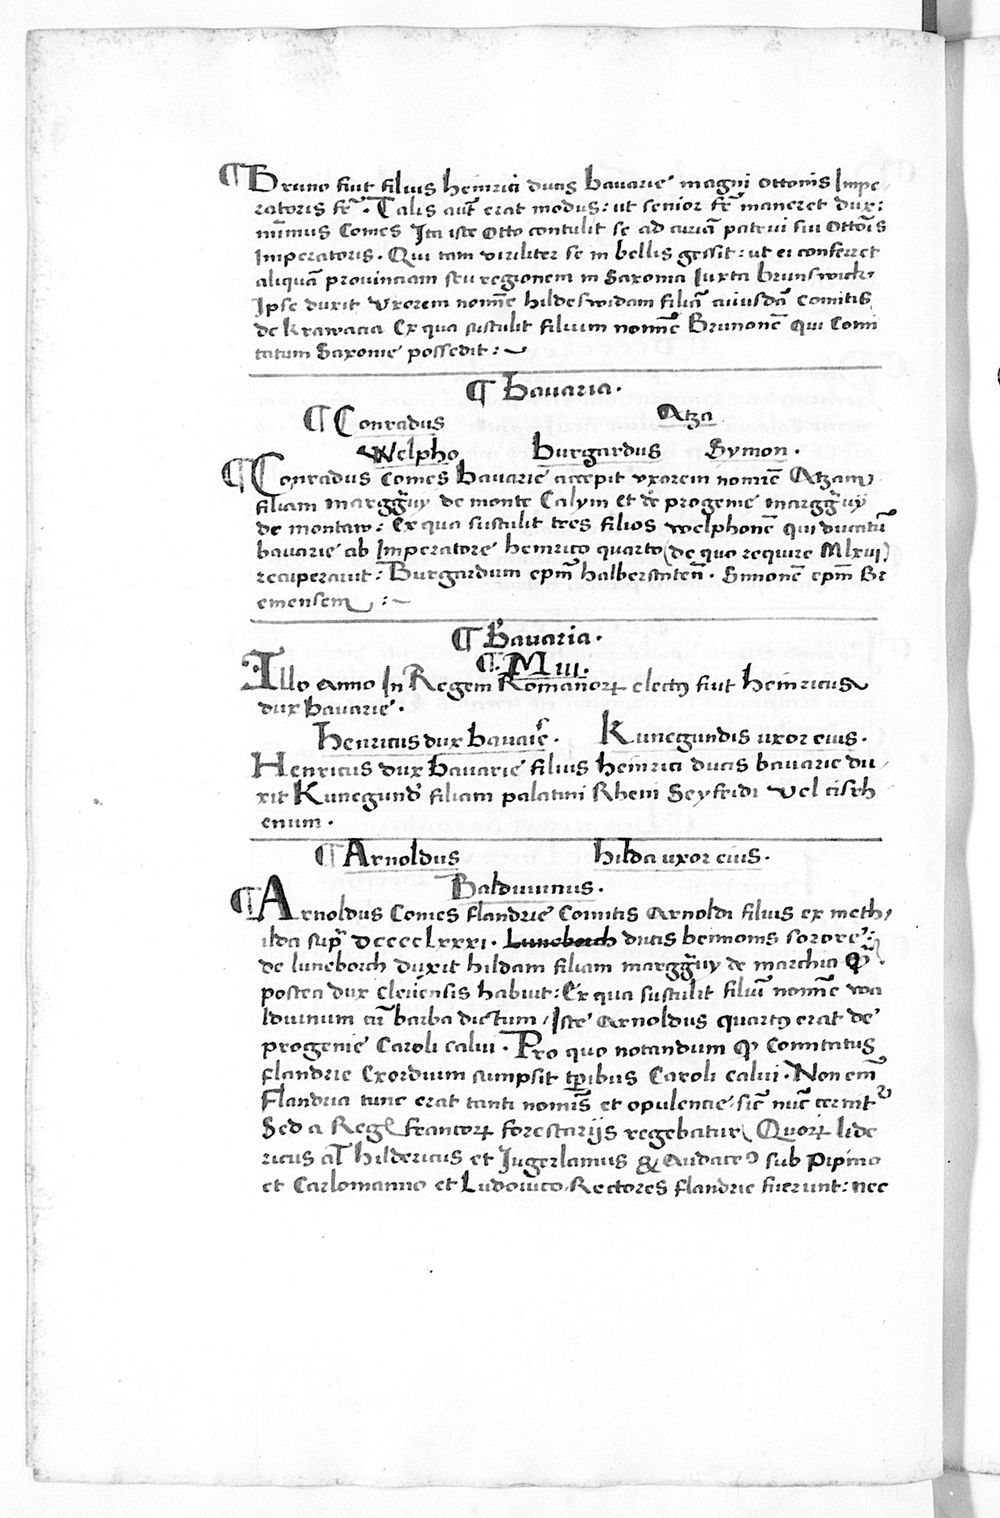 ¶ Bruno fuit filius heinrici ducis bavarie magni ottonis Impe
ratoris fr̄. Talis aut̄ erat modus: ut senior fr̄ maneret dux:
mīmus Comes Ita iste otto contulit se ad curiā patrui sui Ottōis
Imperatoris. Qui tam viriliter se in bellis gessit: ut ei conferret
aliquā provinciam seu regionem in Saxonia Iuxta brunswick:
Ipse duxit Vxorem nomīe hildeswidam filiā cuiusdā Comitis
de krawacia Ex qua sustulit filium nomīe Brunonē Qui Comi
tatum Saxonie possedit:
¶ bavaria.
¶ Conradus Atza
Welpho burgardus Symon.
¶ Conradus Comes bavarie accepit vxorem nomīe Atzam
filiam marggr̄uij de monte Calym et dē progenie marggr̄uij
de montaw: Ex qua sustulit tres filios welphonē qui ducatū
bavarie ab Imperatore heinrico quarto (de quo require Mlxvi)
recuperavit: Burgardum epm̄ halberstateñ. Simonē epm̄ Br
emensem:
¶ Bavaria.
¶. M iii.
Illo anno In Regem Romanorꝝ electꝰ fuit heinricus
dux bavarie.
henricus dux bavarie. Kunegundis uxor eius.
Henricus dux Bavarie filius heinrici ducis bavarie du
xit Kunegund̄ filiam palatini Rheni Seyfridi vel cisch
enum.
¶ Arnoldus hilda uxor eius.
Balduuinus.
¶ Arnoldus Comes flandrie Comitis Arnoldi filius ex meth
ilda sup̄ DCCCClxxxi. Luneborch ducis hennonis sorore:
de luneborch duxit hildam filiam marggr̄uy de marchia Q̄
postea dux clevensis habuit: Ex qua sustulit filiū nomīe wa
lduinum cū barba dictum. Iste Arnoldus quartꝰ erat de
progenie Caroli calvi. Pro quo notandum Q̄ Comitatus
flandrie Exordium sumpsit tp̄ribus Caroli calvi. Non em̄
Flandria tunc erat tanti nomīs et opulentie, sic̄ nūc cernit
Sed a Reḡ francorꝝ forestarijs regebatur Quorꝝ lide
ricus al̄ hildericus et Ingerlamus & Audaceꝰ sub Pipino
et Carlomanno et Ludovico Rectores flandrie fuerunt: nec